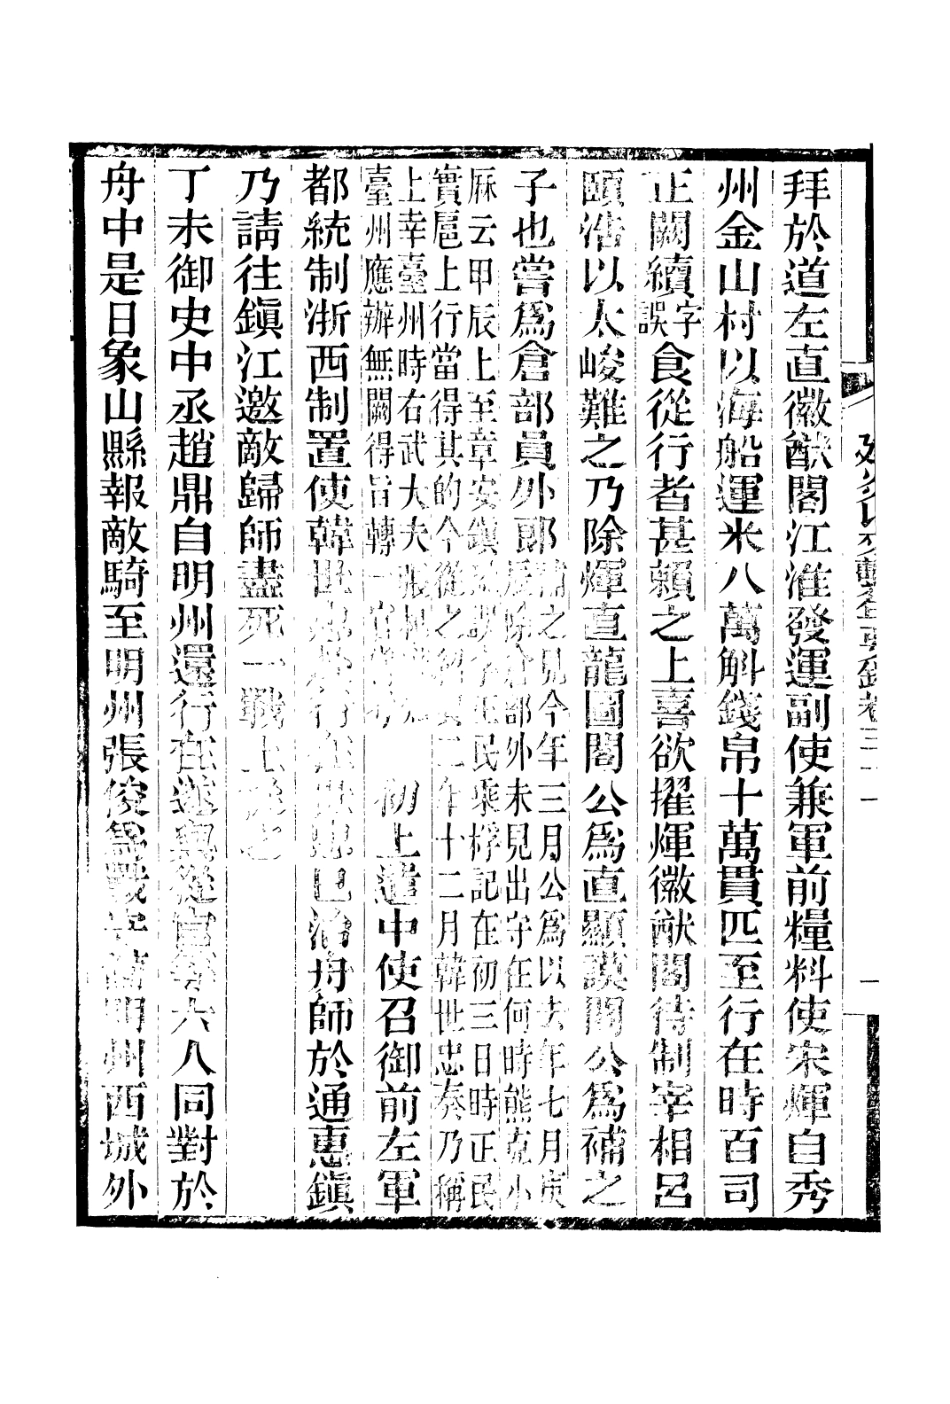 拜於道左直徽猷閣江淮發運副使兼軍前糧料使宋煇自秀
州金山村以海船運米八萬斛錢帛十萬貫匹至行在時百司
正闕續字誤食從行者甚賴之上喜欲擢煇徽猷閣待制宰相呂
頤浩以太峻難之乃除煇直龍圖閣公爲直顯謨閣公爲補之
子也嘗爲倉部員外郎補之見今年三月公爲以去年七月庚
辰除倉部外未見出守在何時熊克小
厤云甲辰上至章安鎮誤字王民乘桴記在初三日時正民
實扈上行當得其的今從之二年十二月韓世忠奏乃稱
上幸臺州時右武大夫張
臺州應辦無闕得旨轉一官初上遣中使召御前左軍
都統制浙西制置使韓世忠治舟師於通惠鎮
乃請往鎮江邀敵歸師盡死一戰上
丁未御史中丞趙鼎自明州還行在六人同對於
舟中是日象山縣報敵騎至明州張俊明州西城外